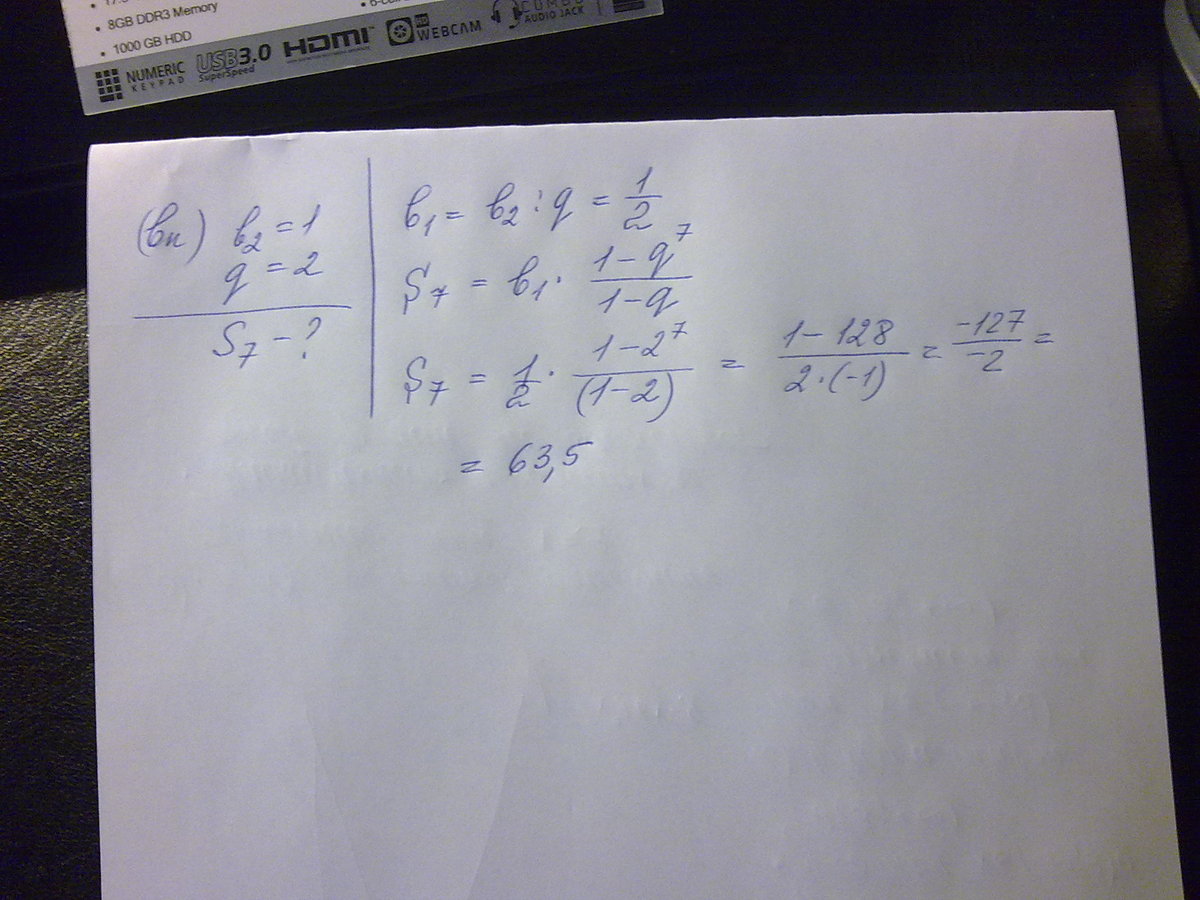 8GB DDR3 Memory
1000 GB HDD
NUMERIC KEYPAD
USB3.0 SuperSpeed
HDMI
WEBCAM
COMBO AUDIO JACK
(bn) b₂ = 1
q = 2
S₇ - ?
b₁ = b₂ : q = 1/2
S₇ = b₁ · (1 - q⁷)/(1 - q)
S₇ = 1/2 · (1 - 2⁷)/(1 - 2) = (1 - 128)/(2 · (-1)) = -127/-2 =
= 63,5